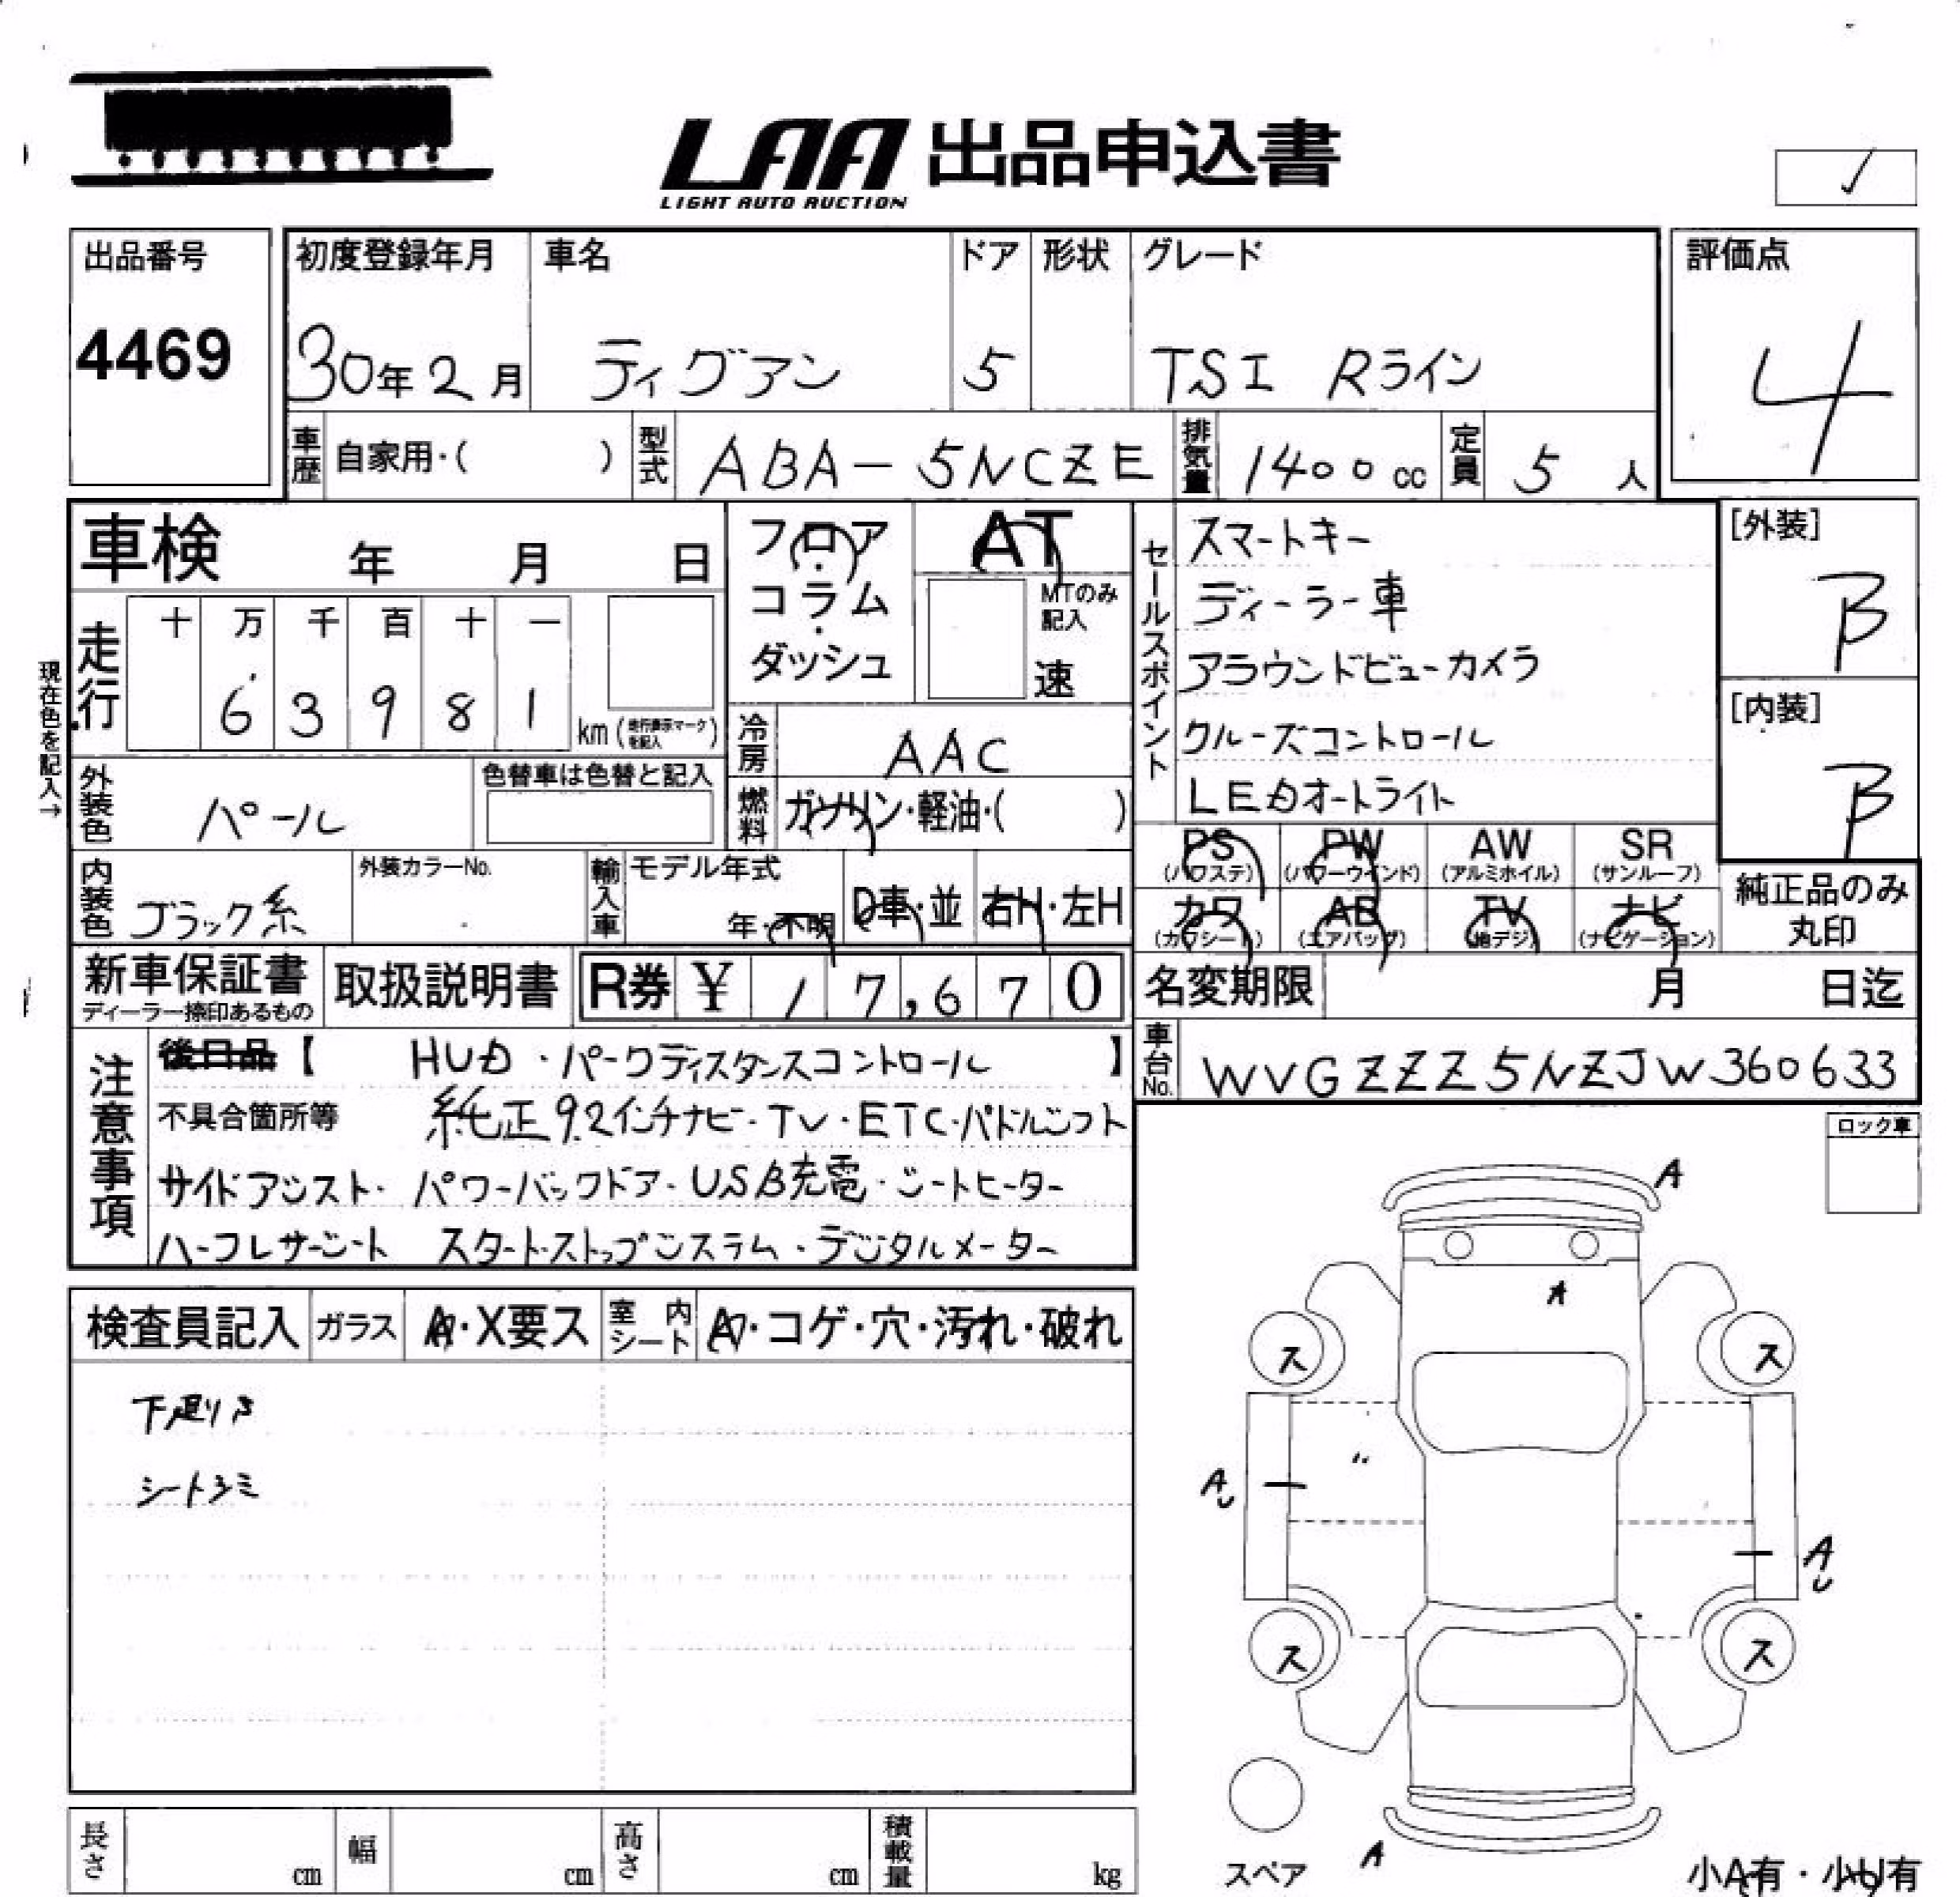 LAA 出品申込書
LIGHT AUTO AUCTION
✓
出品番号
4469
初度登録年月
30年2月
車名
ティグアン
ドア
5
形状
グレード
TSI Rライン
評価点
4
車歴
自家用・( )
型式
ABA-5NCZE
排気量
1400cc
定員
5人
車検 年 月 日
フロア・コラム・ダッシュ
AT
MTのみ記入
速
セールスポイント
スマートキー
ディーラー車
アラウンドビューカメラ
クルーズコントロール
LEDオートライト
[外装]
B
[内装]
B
現在色を記入→
走行
十 万 千 百 十 一
6 3 9 8 1
km(走行表示マークを記入)
冷房
AAC
外装色
パール
色替車は色替と記入
燃料
ガソリン・軽油・( )
PS
(パワステ)
PW
(パワーウインド)
AW
(アルミホイル)
SR
(サンルーフ)
カワ
(カワシート)
AB
(エアバッグ)
TV
(地デジ)
ナビ
(ナビゲーション)
純正品のみ
丸印
内装色
ブラック系
外装カラーNo.
輸入車
モデル年式
年・不明
D車・並
右H・左H
新車保証書
ディーラー捺印あるもの
取扱説明書
R券 ¥ 17,670
名変期限 月 日迄
車台No.
WVGZZZ5NZJW360633
注意事項
後日品【 HUD・パークディスタンスコントロール 】
不具合箇所等 純正9.2インチナビ・TV・ETC・パドルシフト
サイドアシスト・パワーバックドア・USB充電・シートヒーター
ハーフレザーシート スタートストップシステム・デジタルメーター
ロック車
検査員記入
ガラス
A・X要ス
室内シート
・コゲ・穴・汚れ・破れ
シートシミ
A
A
ス
ス
〃
AU
AU
ス
ス
スペア
A
小A有・小U有
長さ cm
幅 cm
高さ cm
積載量 kg